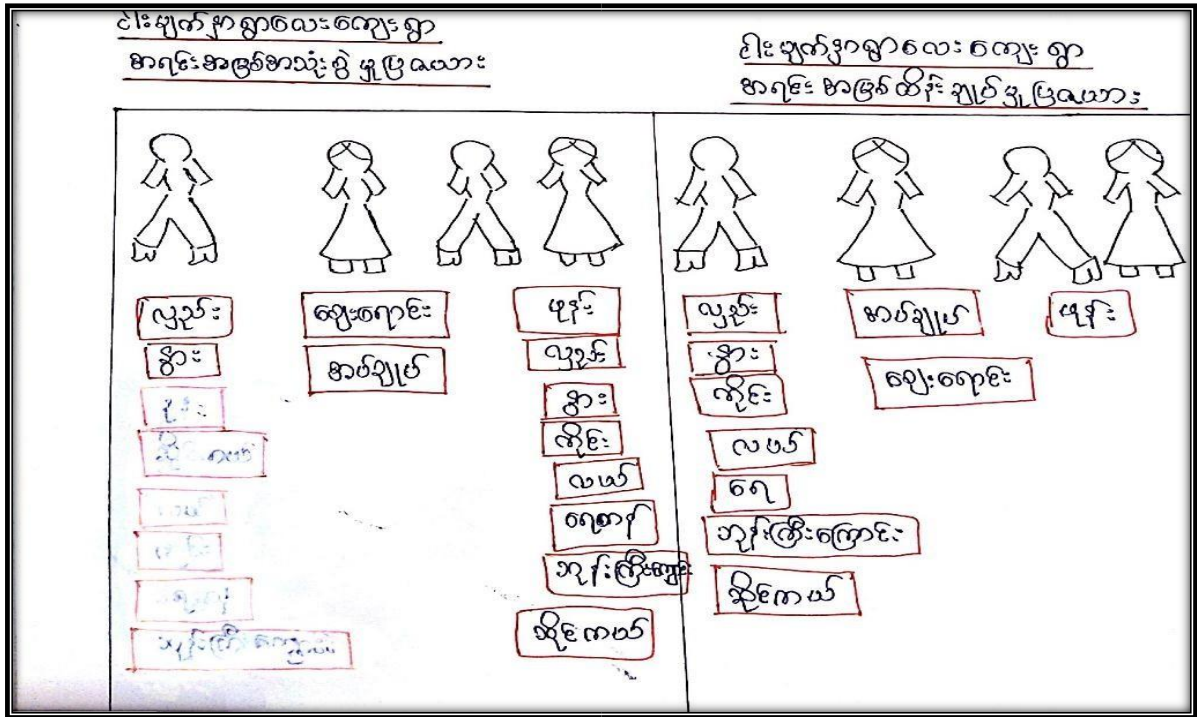 ငါးမျက်နှာရွာလေးကျေးရွာ
အရင်းအမြစ်အသုံးစွဲမှုပြဇယား
ငါးမျက်နှာရွာလေးကျေးရွာ
အရင်းအမြစ်ထိန်းချုပ်မှုပြဇယား
လှည်း
နွား
ဖုန်း
ဆိုင်ကယ်
လယ်
ဘုန်းကြီးကျောင်း
ဈေးရောင်း
အပ်ချုပ်
ဖုန်း
လှည်း
နွား
ကိုင်း
လယ်
ရေကန်
ဘုန်းကြီးကျောင်း
ဆိုင်ကယ်
လှည်း
နွား
ကိုင်း
လယ်
ရေ
ဘုန်းကြီးကြောင်း
ဆိုင်ကယ်
အပ်ချုပ်
ဈေးရောင်း
ဖုန်း